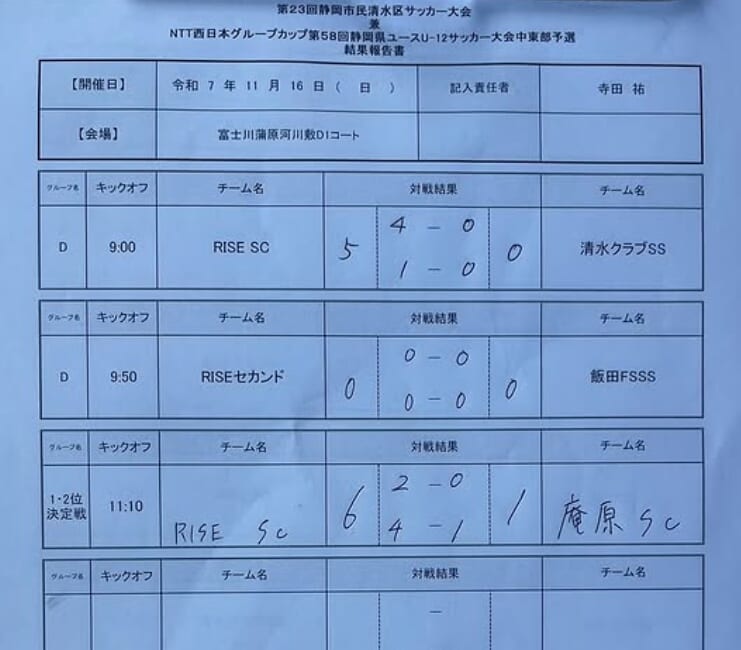 第23回静岡市民清水区サッカー大会
兼
NTT西日本グループカップ第58回静岡県ユースU-12サッカー大会中東部予選
結果報告書
【開催日】 令和 7 年 11 月 16 日 ( 日 ) 記入責任者 寺田 祐
【会場】 富士川蒲原河川敷D1コート
グループ名 キックオフ チーム名 対戦結果 チーム名
4 - 0
D 9:00 RISE SC 5 0 清水クラブSS
1 - 0
グループ名 キックオフ チーム名 対戦結果 チーム名
0 - 0
D 9:50 RISEセカンド 0 0 飯田FSSS
0 - 0
グループ名 キックオフ チーム名 対戦結果 チーム名
2 - 0
1・2位
決定戦 11:10 RISE SC 6 1 庵原 SC
4 - 1
グループ名 キックオフ チーム名 対戦結果 チーム名
-